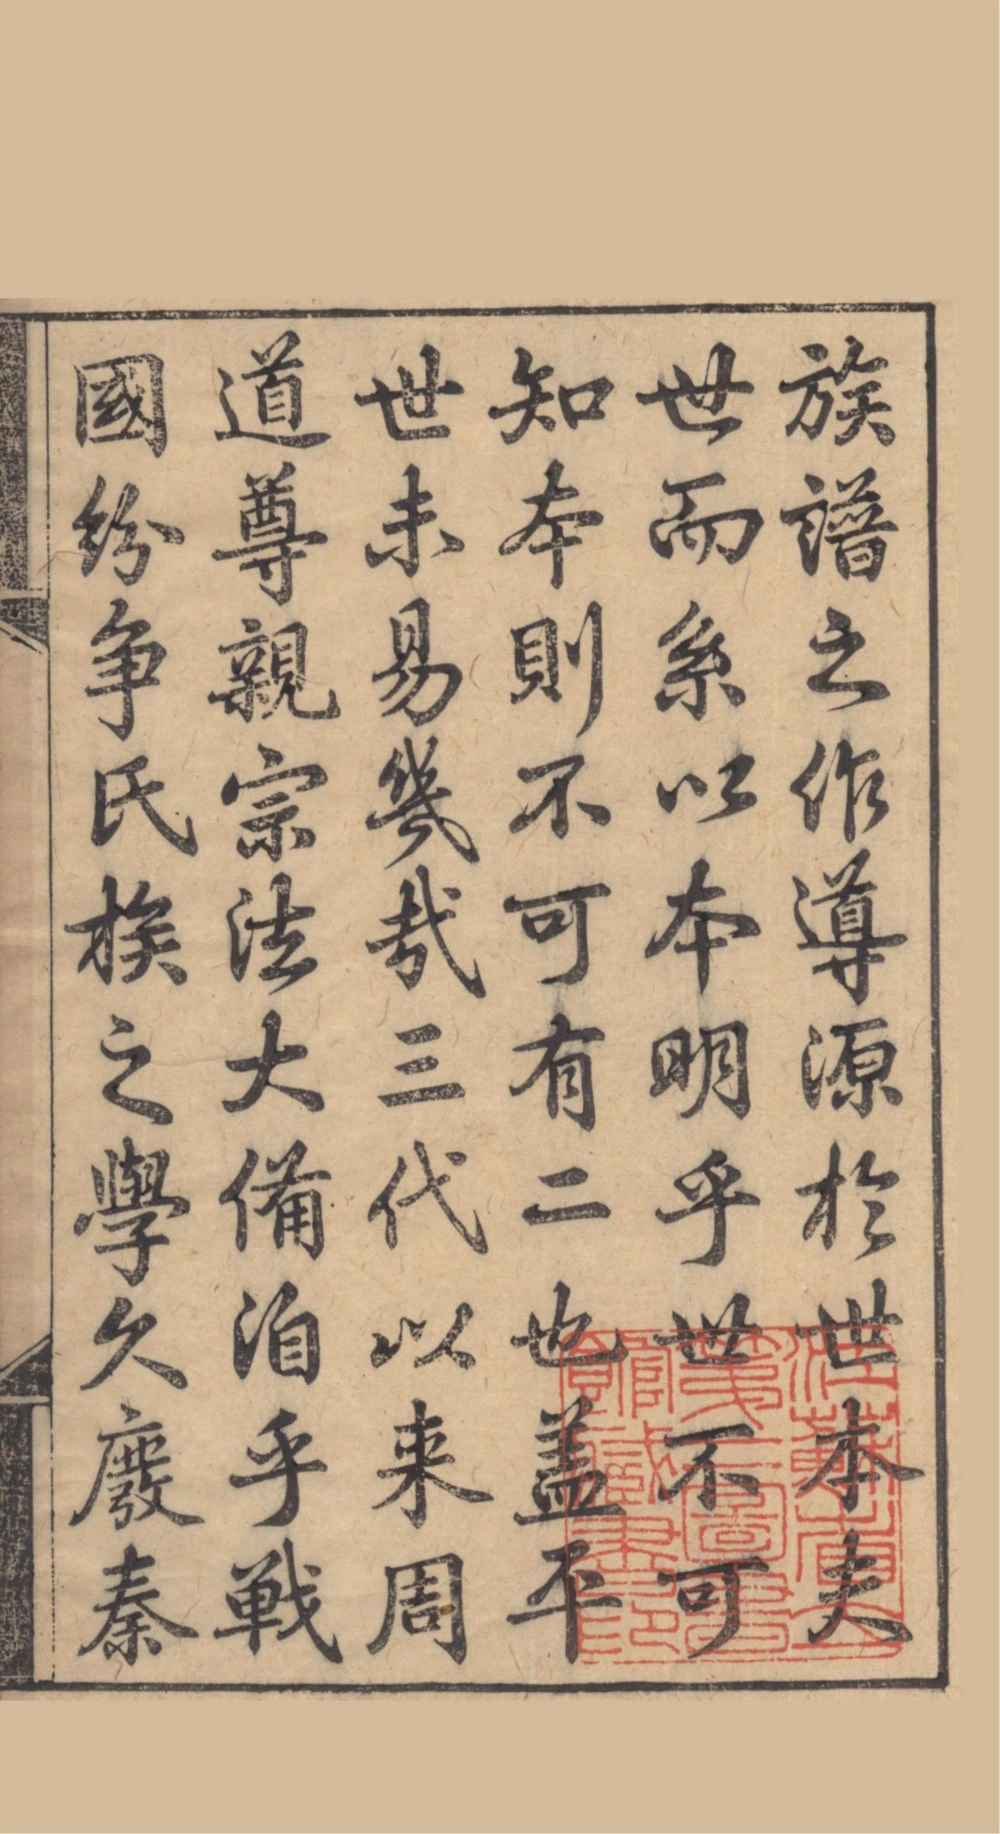 族譜之作導源於世本夫
世而系以本明乎世不可
知本則不可有二也蓋平
世未易幾哉三代以来周
道尊親宗法大備洎乎戦
國紛争氏族之學久廢秦